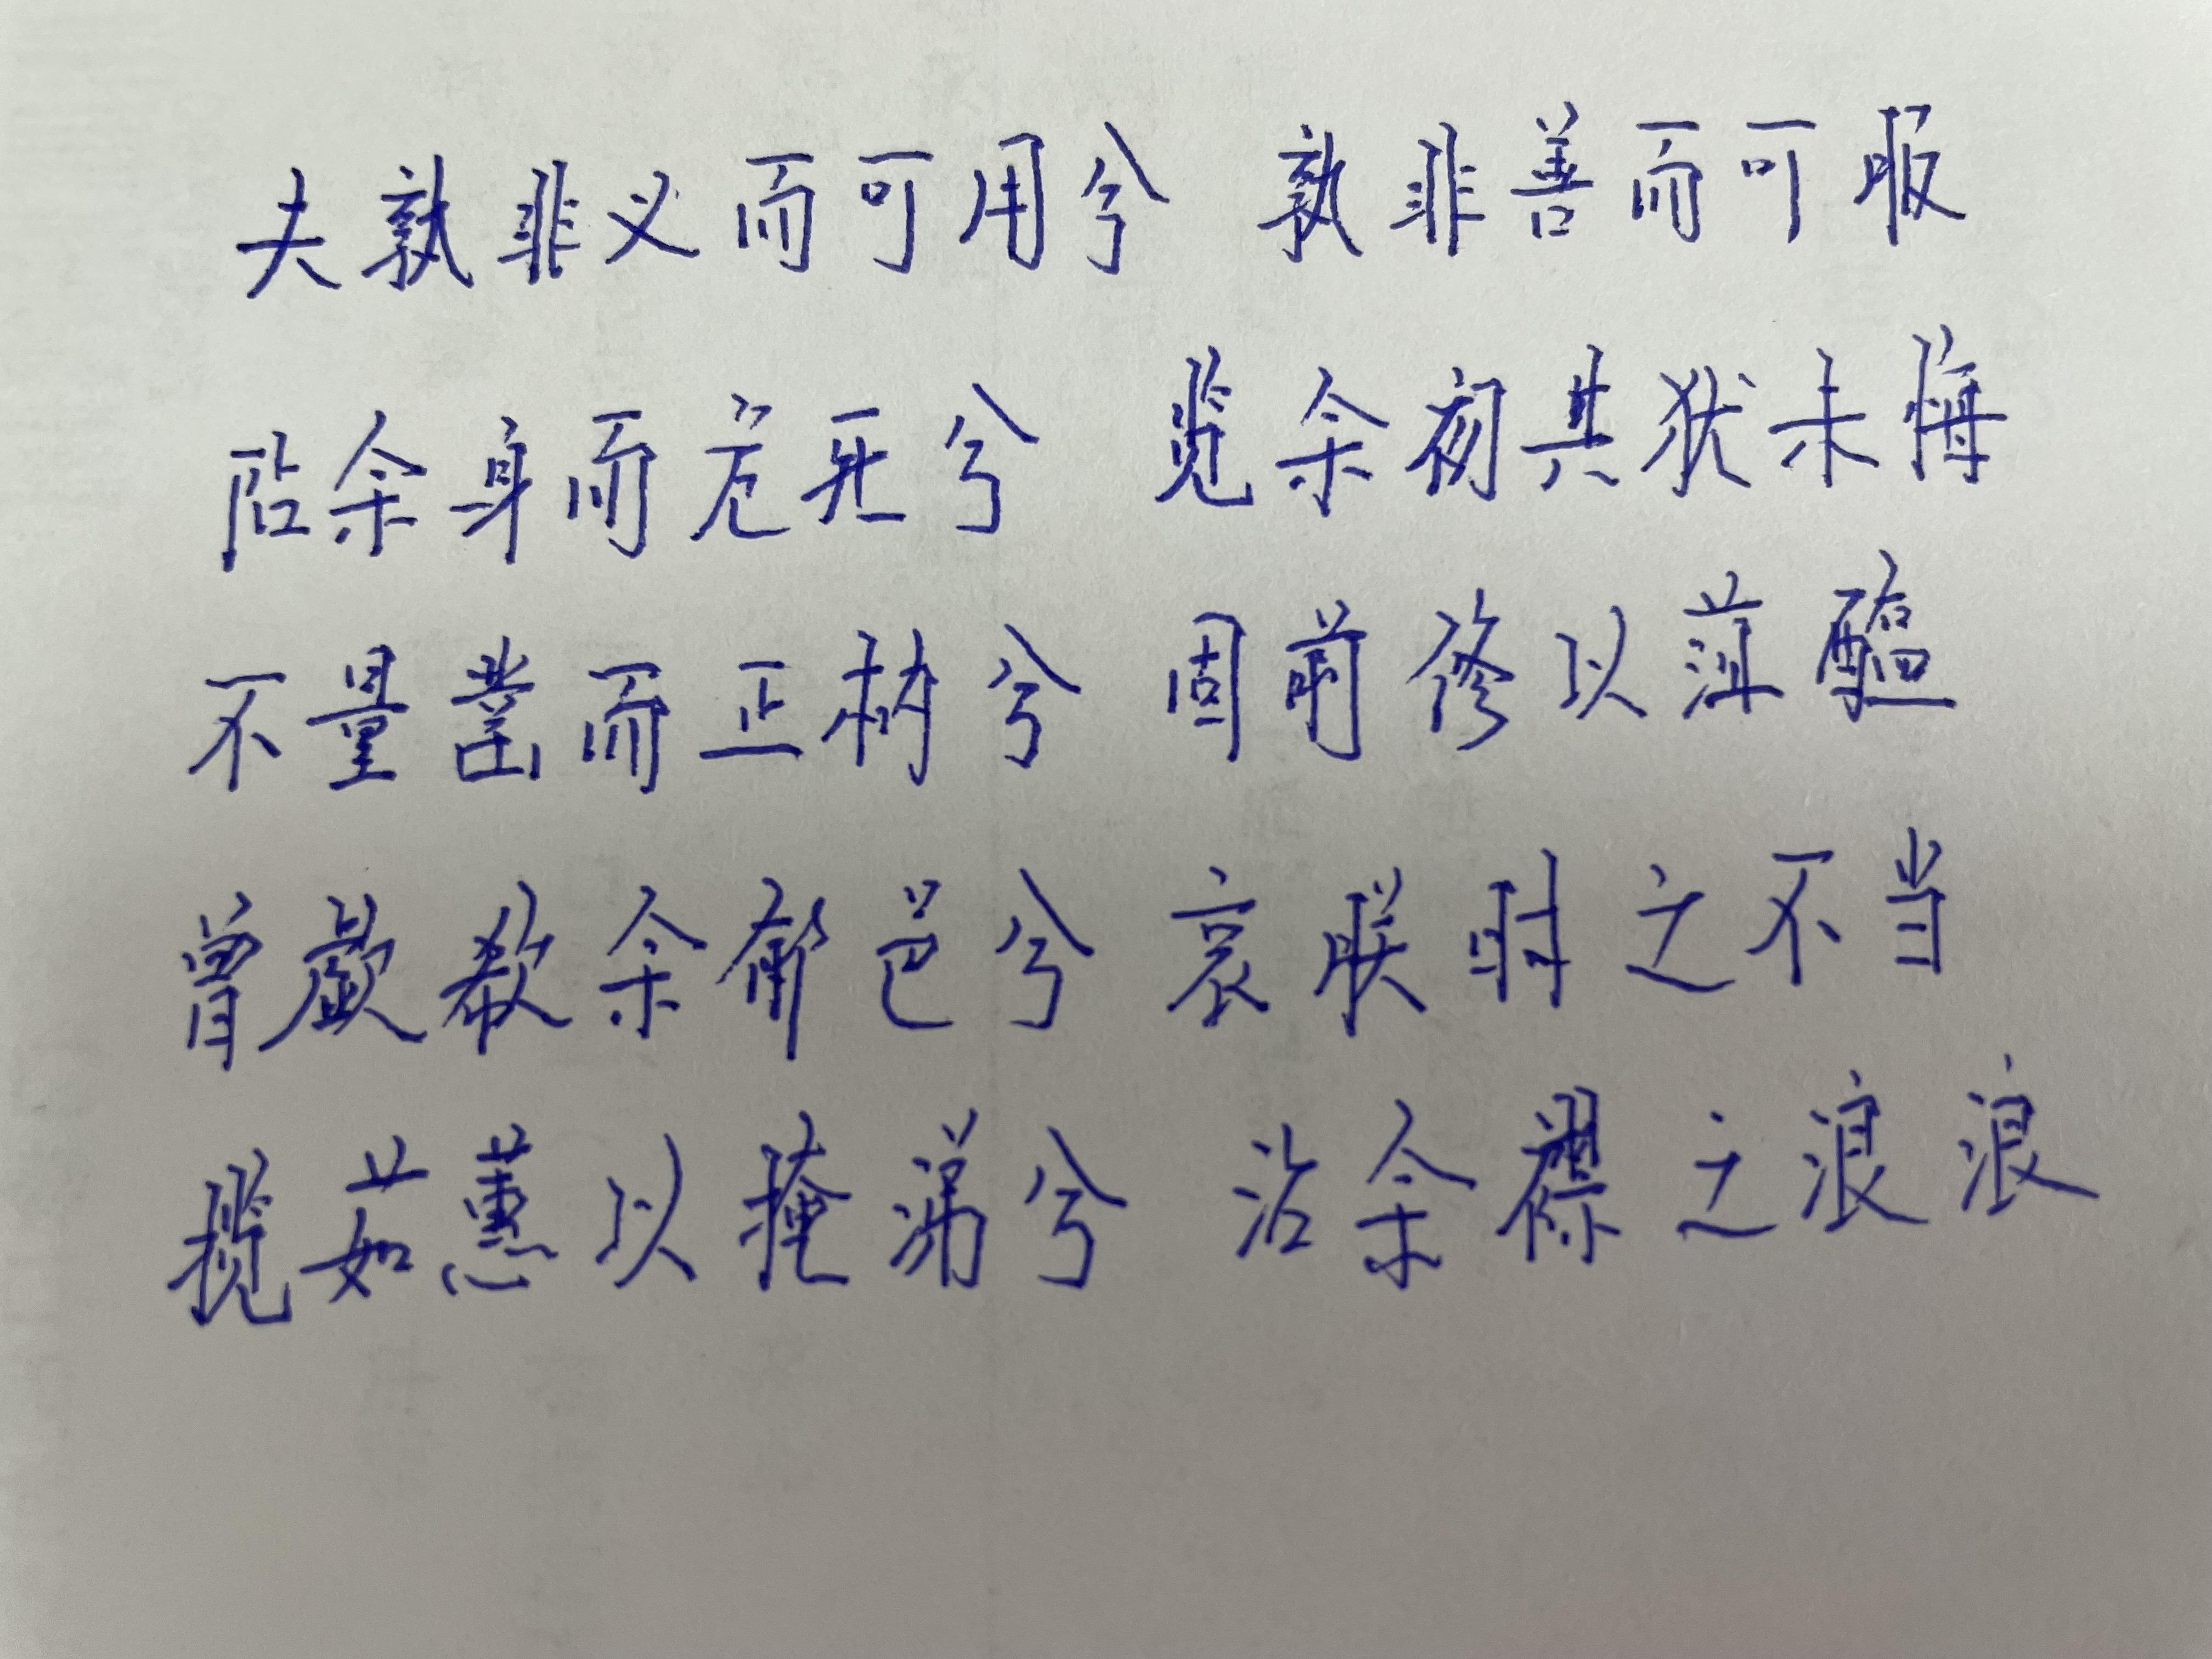 夫孰非义而可用兮 孰非善而可服
阽余身而危死兮 览余初其犹未悔
不量凿而正枘兮 固前修以菹醢
曾歔欷余郁邑兮 哀朕时之不当
揽茹蕙以掩涕兮 沾余襟之浪浪